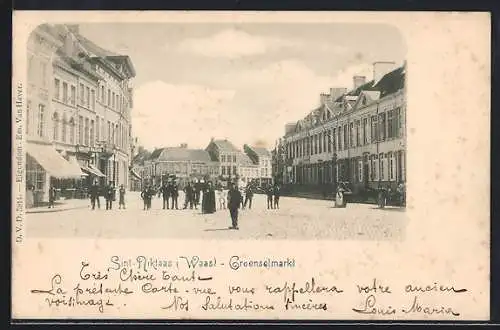 D. V. D. 5841. — Eigendom : Em. Van Haver.
Sint-Niklaas (Waas) - Groenselmarkt
Très Chère Tante
La présente Carte-vue vous rappellera votre ancien
voisinage. Nos Salutations sincères
Louis-Maria